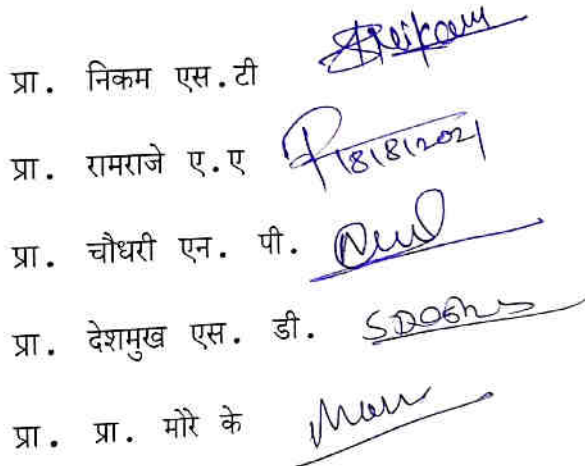 प्रा. निकम एस.टी
प्रा. रामराजे ए.ए 18/8/2021
प्रा. चौधरी एन. पी.
प्रा. देशमुख एस. डी.
प्रा. प्रा. मोरे के